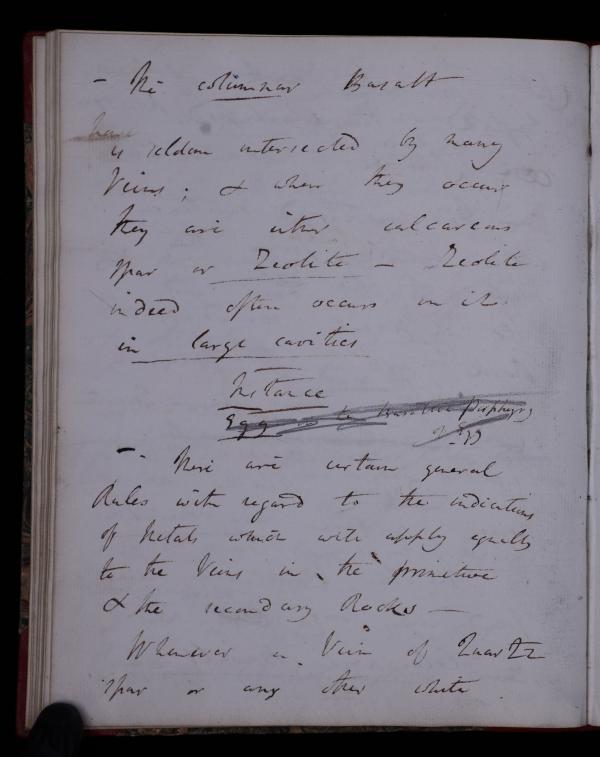 - The columnar Basalt
is seldom intersected by many
Veins; & when they occur
they are either calcareous
spar or Zeolite - Zeolite
indeed often occurs in it
in large cavities
Instance
Egg in the Porphyry
of Egg
- There are certain general
Rules with regard to the indications
of Metals which will apply equally
to the Veins in the primitive
& the secondary Rocks -
Whenever a Vein of Quartz
spar or any other white